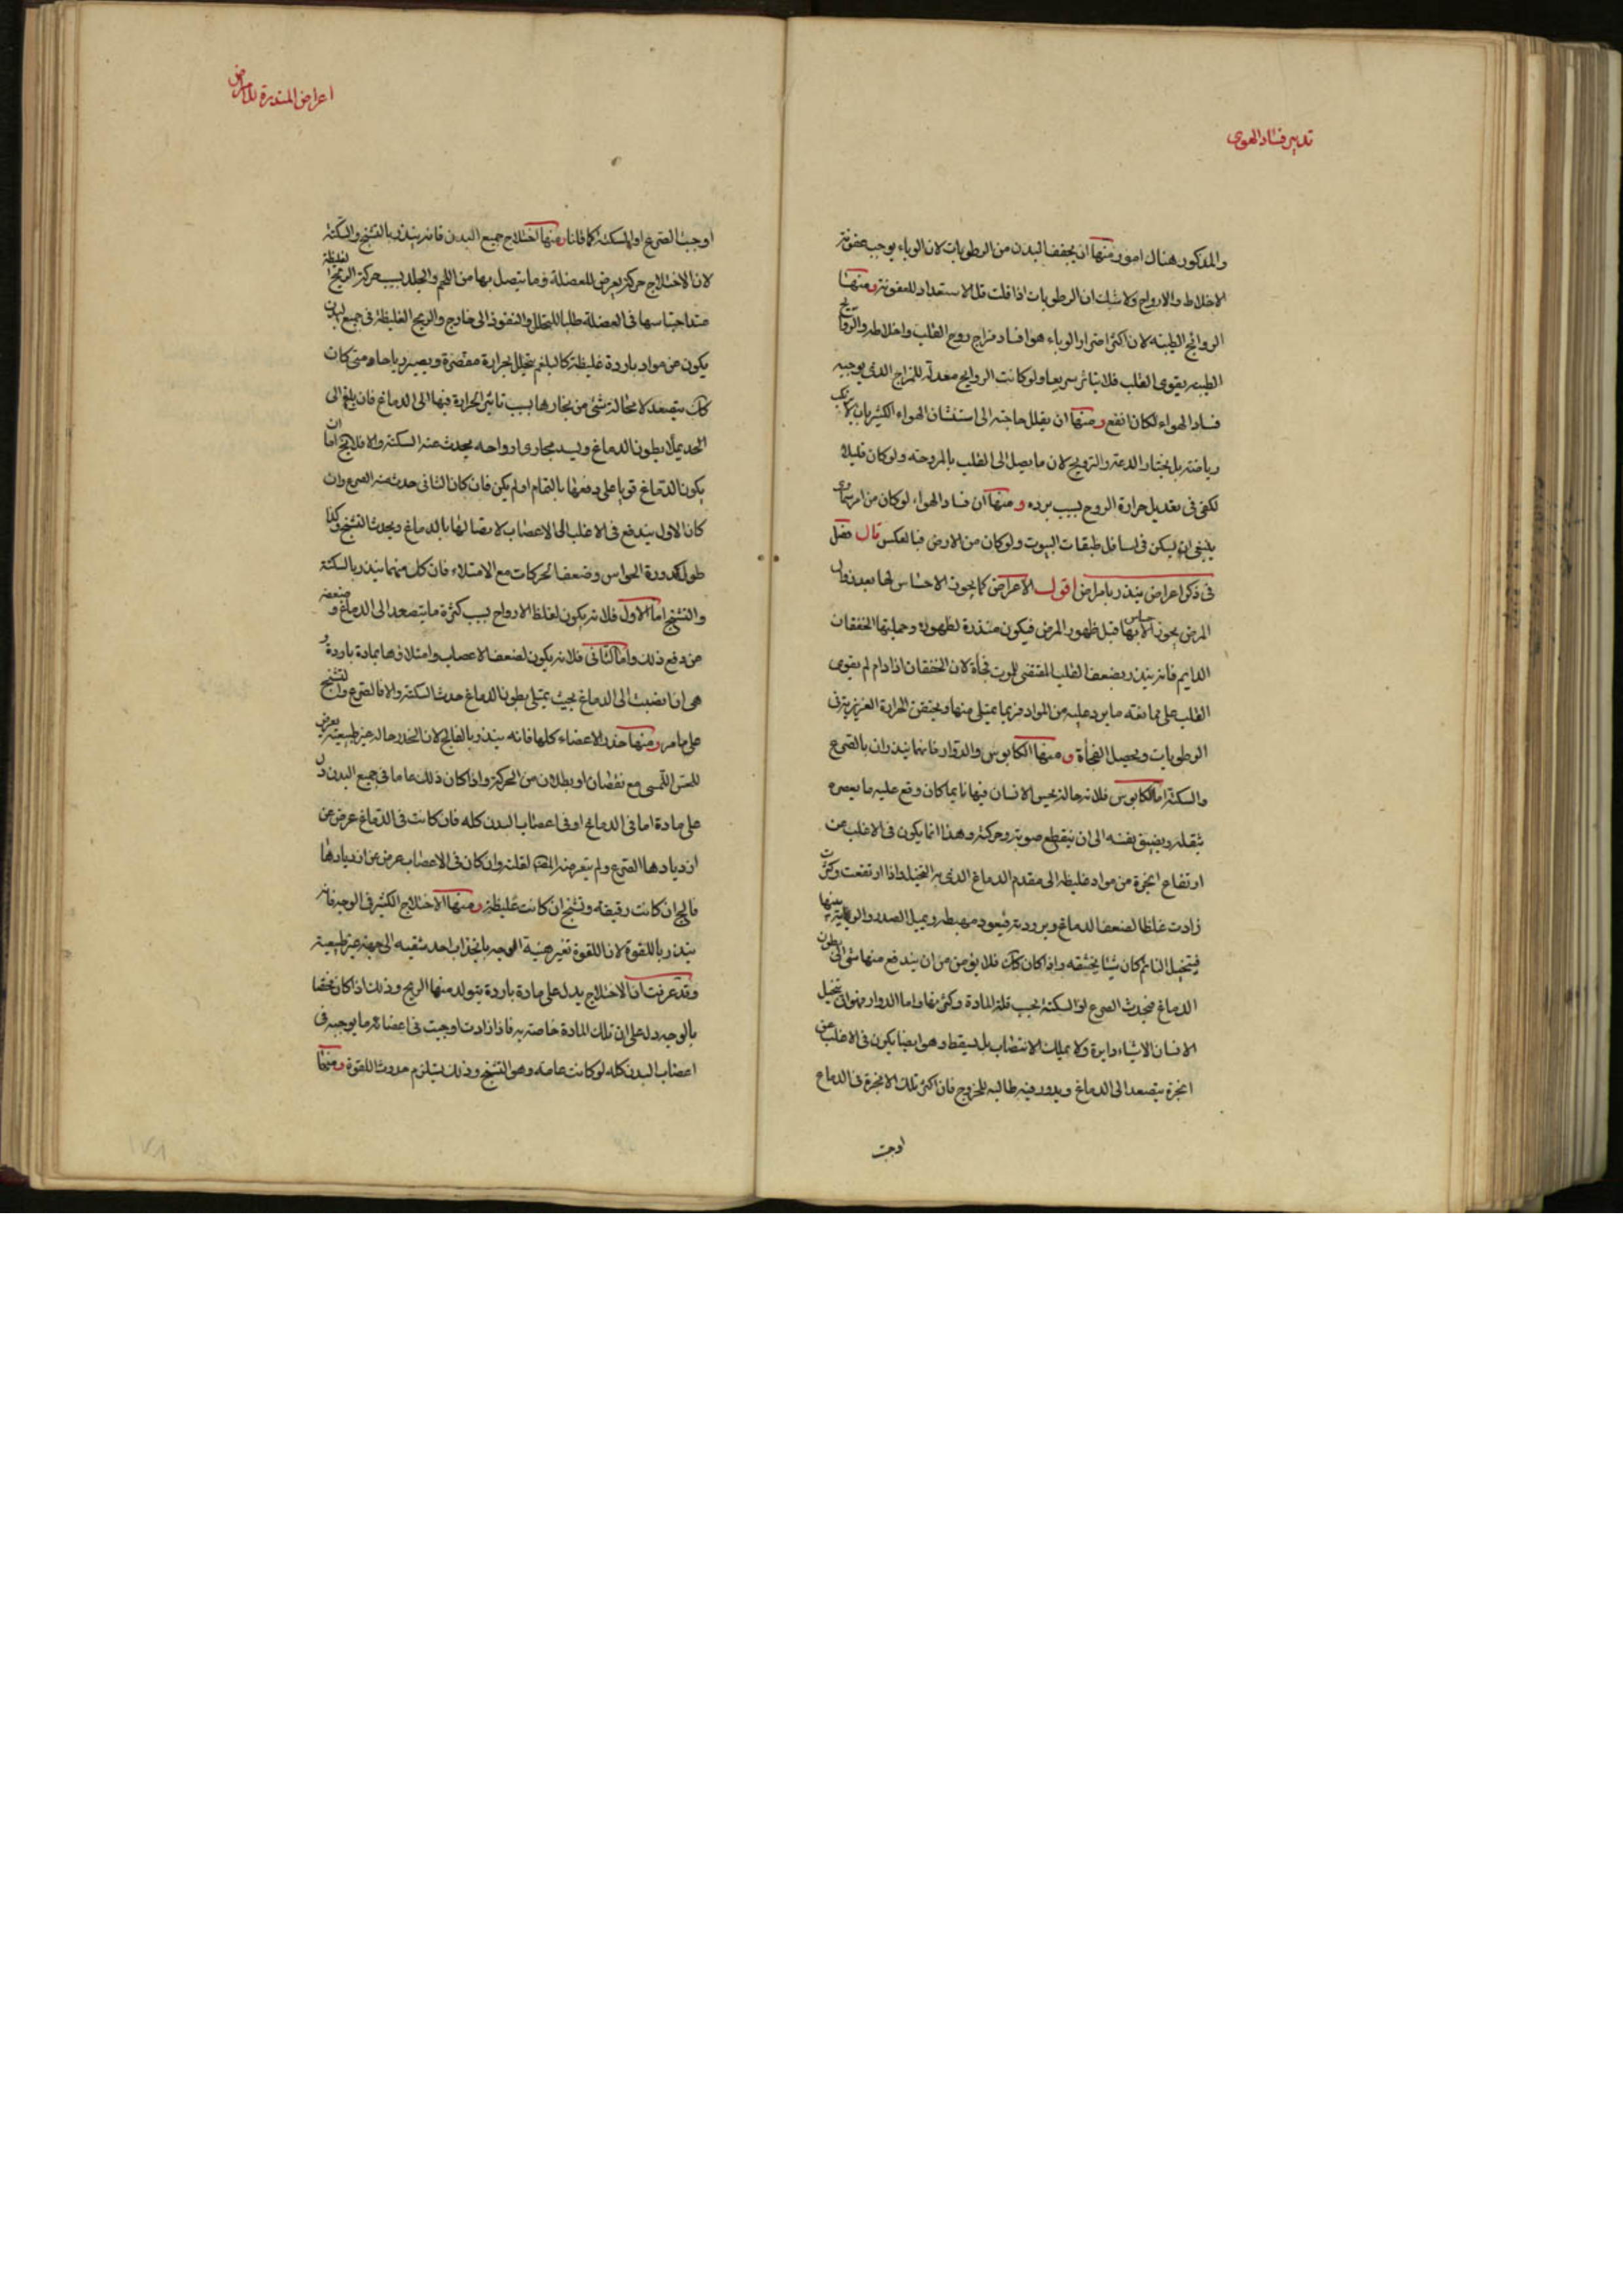 تدبير فساد الهوى
والمذكور هناك امور ومنها ان يجفف البدن من الرطوبات لان الوباء يوجب عفونة
الاخلاط والارواح ولا شك ان الرطوبات اذا قلت قل الاستعداد للعفونة ومنها
الروائح الطيبة لان اكثر اضرار الوباء هو افساد مزاج روح القلب واخلاطه والروايح
الطيبه يقوى القلب فلا يتاثر سريعا ولو كانت الروايح معدلة للمزاج الذى يوجبه
فساد الهواء لكان انفع ومنها ان يقلل حاجته الى استنشاق الهواء الكثير بان لا يترك
رياضته بل يختار الدعة والترويح لان ما يصل الى القلب بالمروحة ولو كان قليلا
لكفى فى تعديل حرارة الروح بسبب برده ومنها ان فساد الهواء لو كان من امر سماوى
ينبغى ان يسكن فى اسافل طبقات البيوت ولو كان من الارض فبالعكس قال فصل
فى ذكر اعراض ينذر بامراض اقول الاعراض كما يجوز الاحساس لها بعد نزول
المرض يجوز الاحساس بها قبل ظهور المرض فيكون منذرة لظهوره وجملتها الخفقان
الدايم فانه ينذر بضعف القلب المقتضى للموت فجأة لان الخفقان اذا دام لم يقوى
القلب على ممانعته ما يرد عليه من المواد فربما يمتلى منها ويختقن الحرارة الغريزية فى
الرطوبات ويحصل الفجأة ومنها الكابوس والدوار فانهما ينذران بالصرع
والسكتة اما الكابوس فلانه حالة يحس الانسان فيها نايما كان وقع عليه ما يعصره
بثقله ويضيق نفسه الى ان ينقطع صوته وحركته وهذا انما يكون فى الاغلب من
ارتفاع ابخرة من مواد غليظه الى مقدم الدماغ الذى به التخيل واذا ارتفعت وكثرت
زادت غلظا لضعف الدماغ وبرودته فيعود مهبطه ويميل الصدر والرية بينها
فيتخيل النائم كان شيئا يخنقه واذا كان كذلك فلا يؤمن من ان يندفع منها شئ الى بطون
الدماغ فيحدث الصرع او السكتة بحسب قلة المادة وكثرتها واما الدوار فهو ان يتخيل
الانسان الاشياء دايرة ولا يملك الانتصاب بل يسقط وهو ايضا يكون فى الاغلب عن
ابخرة يتصعد الى الدماغ ويدور فيه طالبه للخروج فان اكثر تلك الابخرة فى الدماغ
اوجبت
اعراض المنذرة للامراض
اوجبت الصرع او السكتة كما قلنا ومنها اختلاج جميع البدن فانه ينذر بالتشنج والسكتة
لان الاختلاج حركة يعرض للعضلة وما يتصل بها من اللحم والجلد بسبب حركة الريح الغليظة
عند احتباسها فى العضلة طلبا للتحلل والنفوذ الى خارج والريح الغليظة فى جميع البدن
يكون من مواد باردة غليظة كالبلغم يتحلل بحرارة مقصرة ويصير رياحا ومتى كان
كذلك يتصعد لا محالة شئ من بخارها بسبب تاثير الحرارة فيها الى الدماغ فان بلغ الى
الحد يملا بطون الدماغ ويسد مجارى ارواحه يحدث عنه السكتة والا فلا يخ اما ان
يكون الدماغ قويا على دفعها بالتمام او لم يكن فان كان الثانى حدث منه الصرع وان
كان الاول يندفع فى الاغلب الى الاعصاب لاتصالها بالدماغ ويحدث التشنج وكذا
طول كدورة الحواس وضعف الحركات مع الامتلاء فان كل منهما ينذر بالسكتة
والتشنج اما الاول فلانه يكون لغلظ الارواح بسبب كثرة ما يتصعد الى الدماغ وضعفه
عن دفع ذلك واما الثانى فلانه يكون لضعف الاعصاب وامتلاءها بمادة باردة و
هى اذا انصبت الى الدماغ بحيث يمتلى بطون الدماغ حدث السكتة والا فالصرع والتشنج
على ما مر ومنها خدر الاعضاء كلها فانه ينذر بالفالج لان الخدر حالة غير طبيعية يعرض
للحس اللمسى مع نقصان او بطلان من الحركة واذا كان ذلك عاما فى جميع البدن دل
على مادة اما فى الدماغ او فى اعصاب البدن كله فان كانت فى الدماغ عرض من
ازديادها الصرع ولم يتعرضه المص لقلته وان كان فى الاعصاب عرض من ازديادها
فالج ان كانت رقيقة وتشنج ان كانت غليظة ومنها الاختلاج الكثير فى الوجه فانه
ينذر باللقوة لان اللقوة تغير هيئة الوجه بانجذاب احد شقيه الى جهة غير طبيعية
وقد عرفت ان الاختلاج يدل على مادة باردة يتولد منها الريح وذلك اذا كان مختصا
بالوجه دل على ان تلك المادة خاصة به فاذا زادت اوجبت فى اعضائه ما يوجبه فى
اعصاب البدن كله لو كانت عامة وهو التشنج وذلك يستلزم حدوث اللقوة ومنها